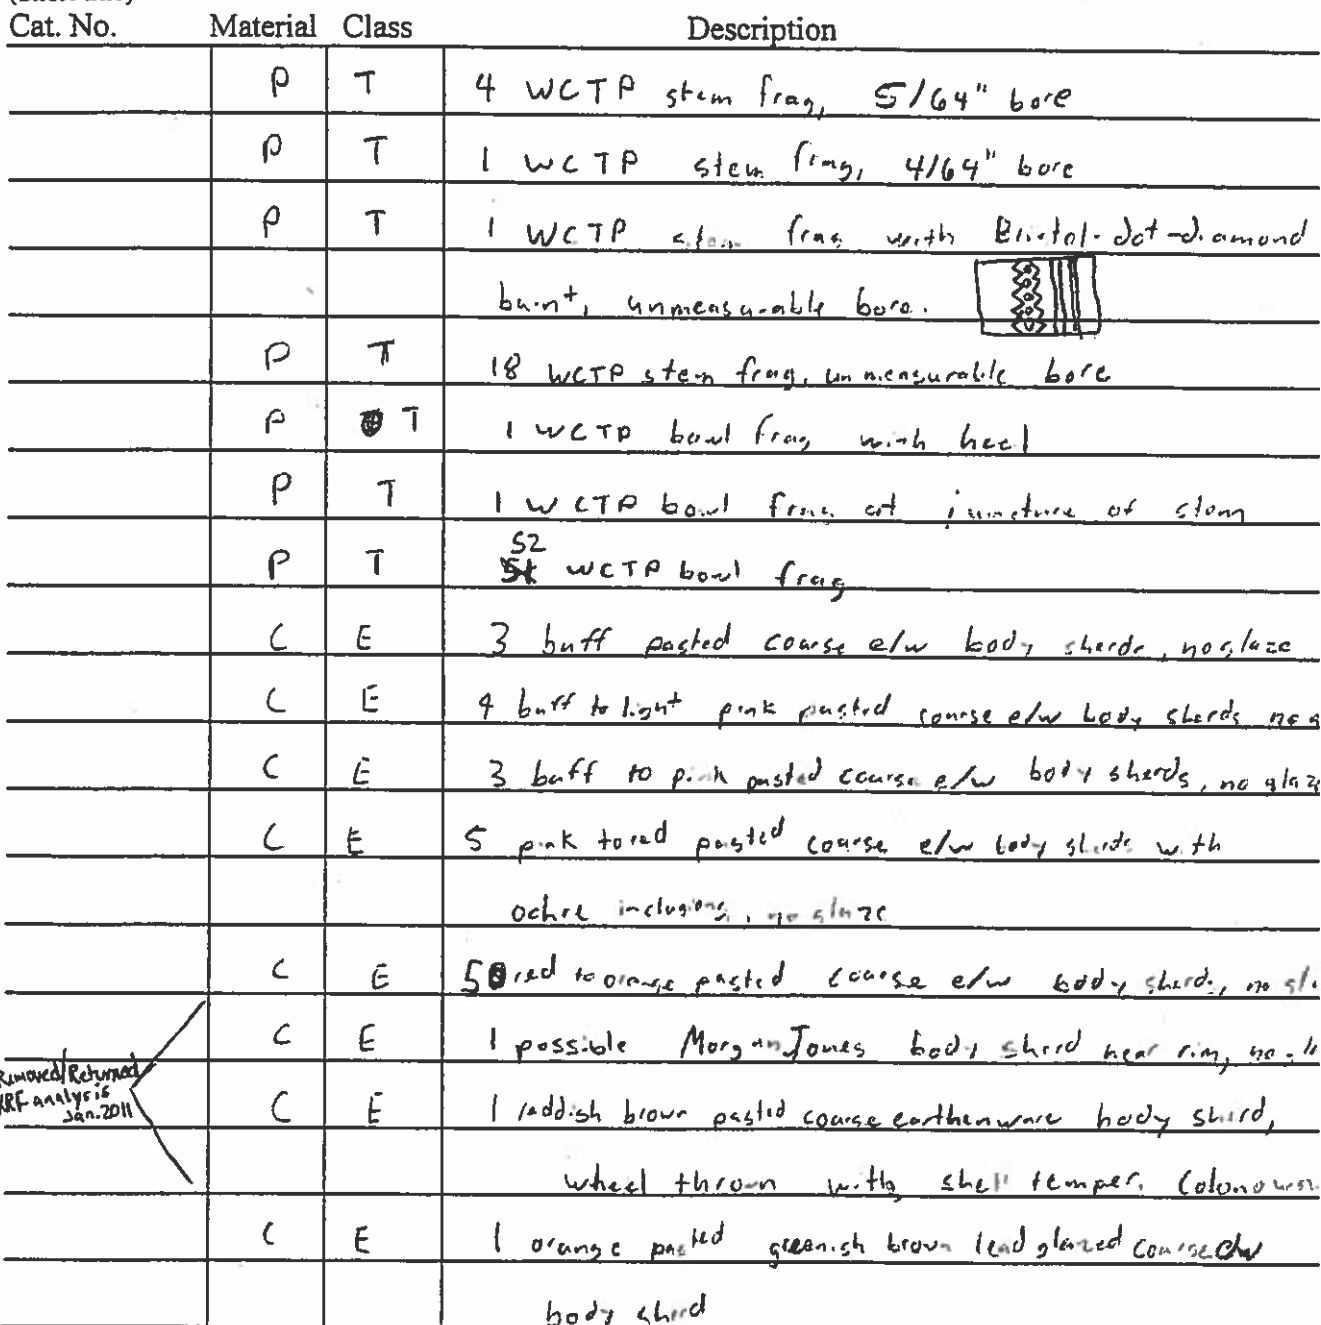 Cat. No. Material Class Description
P T 4 WCTP stem frag, 5/64" bore
P T 1 WCTP stem frag, 4/64" bore
P T 1 WCTP stem frag with Bristol-dot-diamond
burnt, unmeasurable bore.
P T 18 WCTP stem frag, unmeasurable bore
P T 1 WCTP bowl frag with heel
P T 1 WCTP bowl frag at juncture of stem
P T 52 WCTP bowl frag
C E 3 buff pasted coarse e/w body sherds, no glaze
C E 4 buff to light pink pasted coarse e/w body sherds no g
C E 3 buff to pink pasted coarse e/w body sherds, no glaze
C E 5 pink to red pasted coarse e/w body sherds with
ochre inclusions, no glaze
C E 5 red to orange pasted coarse e/w body sherds, no gl
C E 1 possible Morgan Jones body sherd near rim, no
Removed/Returned
XRF analysis
Jan. 2011
C E 1 reddish brown pasted coarse earthenware body sherd,
wheel thrown with shell temper.
C E 1 orange pasted greenish brown lead glazed coarse e/w
body sherd